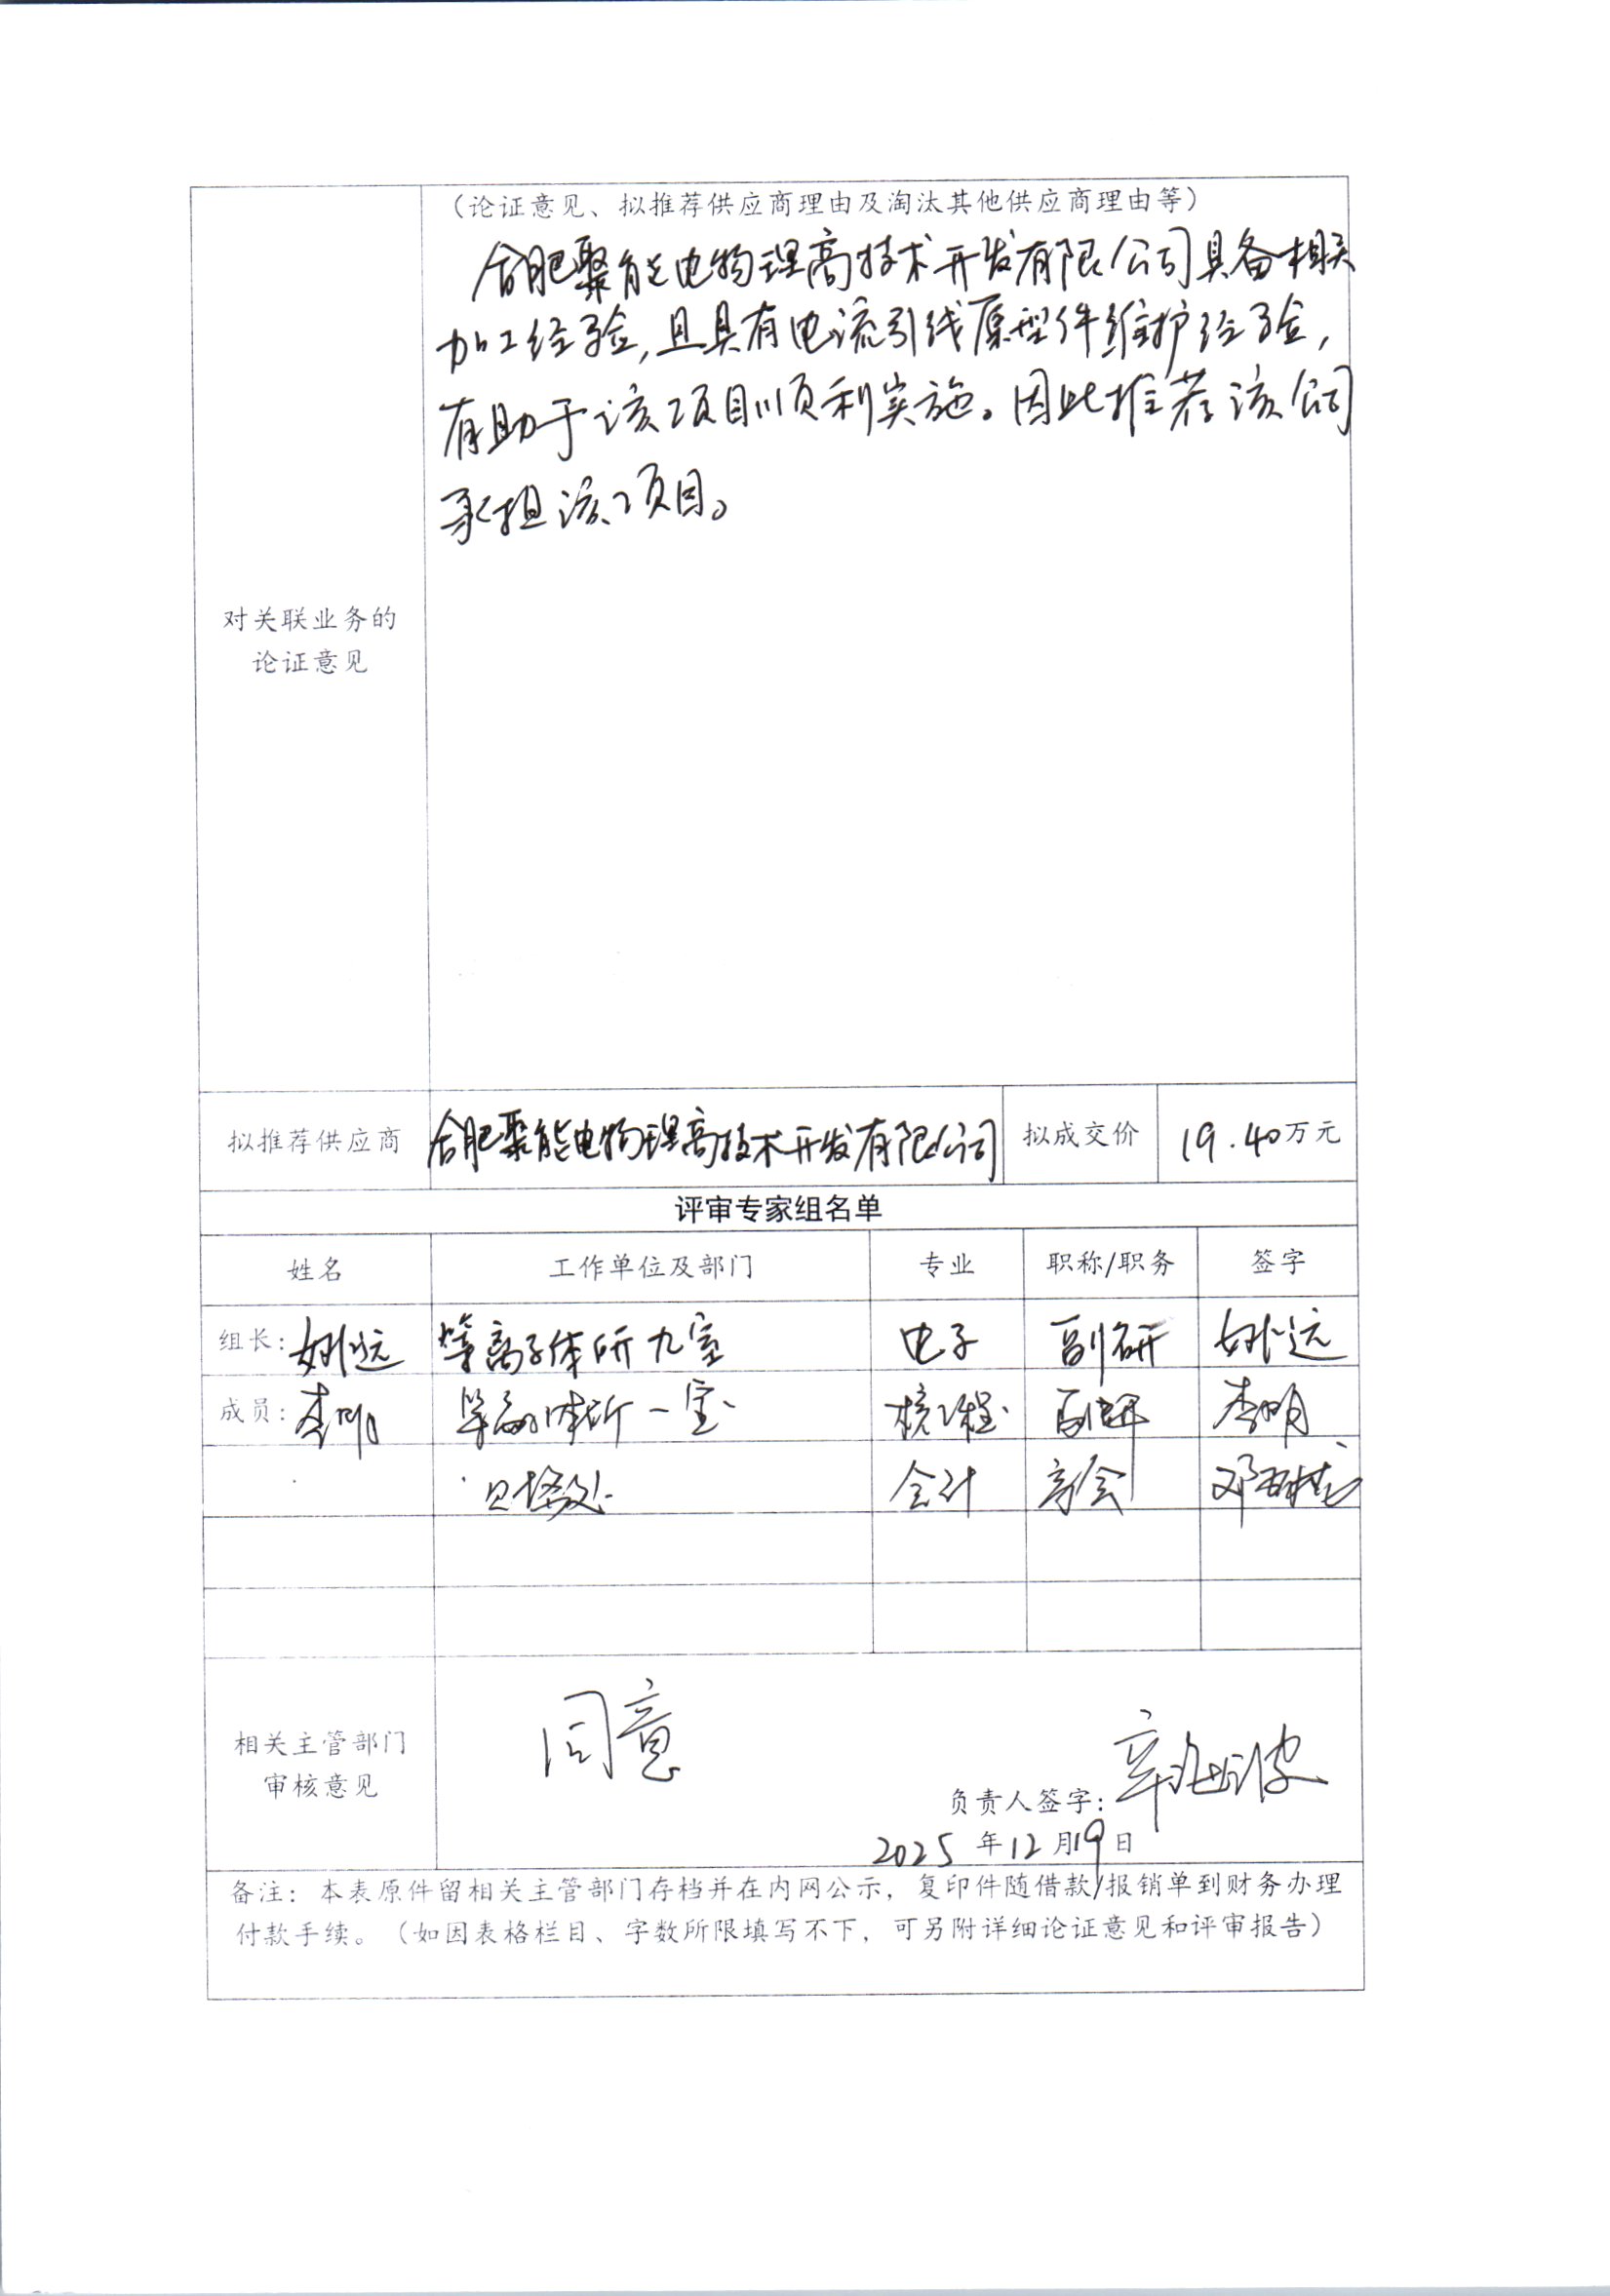 （论证意见、拟推荐供应商理由及淘汰其他供应商理由等）
合肥聚能电物理高技术开发有限公司具备相关
加工经验,且具有电流引线原型件维护经验,
有助于该项目顺利实施。因此推荐该公司
承担该项目。
对关联业务的
论证意见
拟推荐供应商 合肥聚能电物理高技术开发有限公司 拟成交价 19.40万元
评审专家组名单
姓名 工作单位及部门 专业 职称/职务 签字
组长: 姚远 等离子体所九室 电子 副研 姚远
成员: 李明 等离子体所一室 核工程 副研 李明
财务处 会计 高会
同意
相关主管部门
审核意见
负责人签字:
2025 年 12 月 19 日
备注：本表原件留相关主管部门存档并在内网公示，复印件随借款/报销单到财务办理
付款手续。（如因表格栏目、字数所限填写不下，可另附详细论证意见和评审报告）